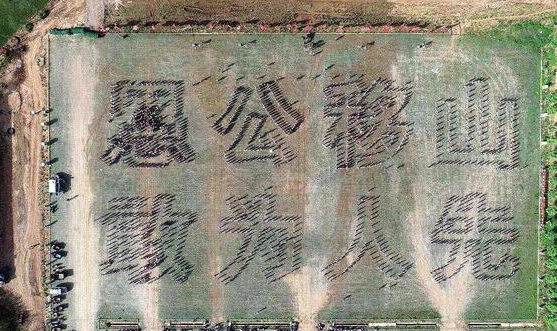 愚公移山
敢为人先